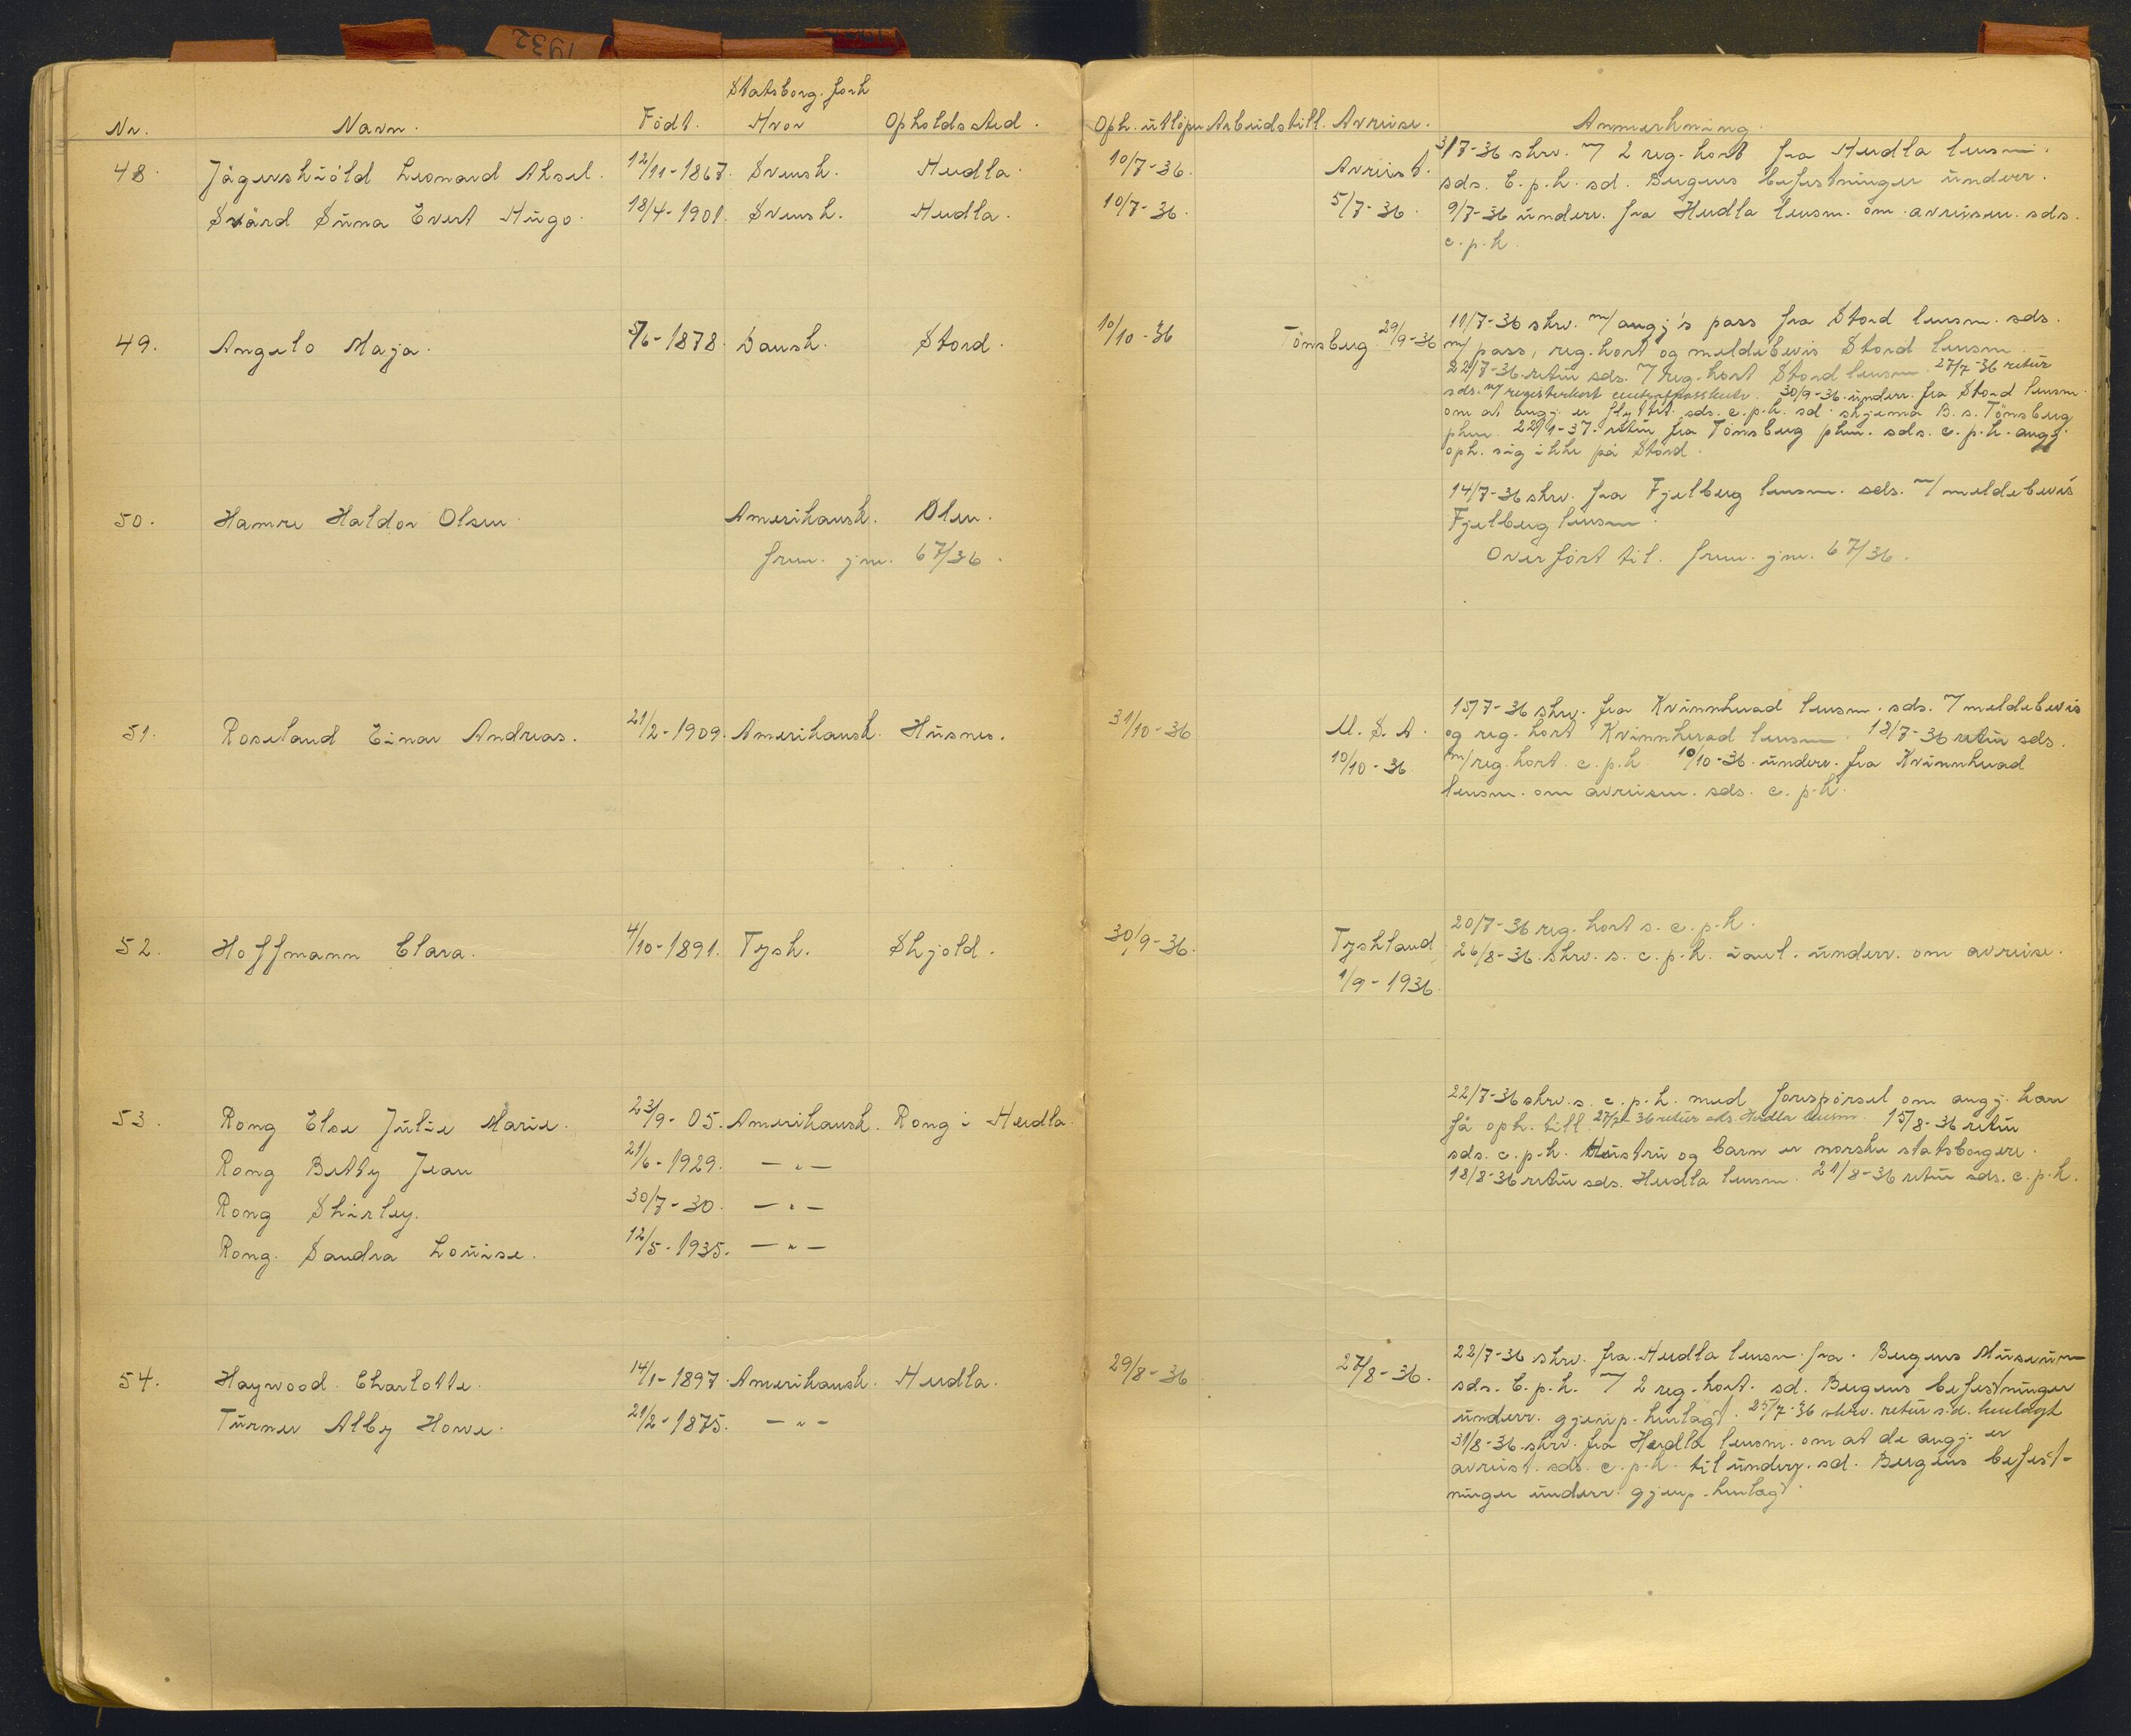 1932
Statsborg. forh
Nr. Navn. Födt. Hvor Opholdssted.
48. Jägerskiöld Leonard Aksel. 12/11-1867. Svensk. Herdla.
Svärd Suna Evert Hugo. 18/4-1901. Svensk. Herdla.
49. Angelo Maja. 5/6-1878. Dansk. Stord.
50. Hamre Haldor Olsen. Amerikansk. Ölen.
frem. jnr. 67/36.
51. Roseland Einar Andreas. 21/2-1909. Amerikansk. Husnes.
52. Hoffmann Clara. 4/10-1891. Tysk. Skjold.
53. Rong Else Julie Marie. 23/9-05. Amerikansk. Rong i Herdla.
Rong Betty Jean 21/6-1929. — " —
Rong Shirley. 30/7-30. — " —
Rong. Sandra Louise. 12/5-1935. — " —
54. Haywood. Charlotte. 14/1-1897. Amerikansk. Herdla.
Turner Alby Howe. 21/2-1875. — " —
Oph. utlöper Arbeidstill. Avreise. Anmerkning.
10/7-36. Avreist. 3/7-36 skrv. m/ 2 reg. kort fra Herdla lensm.
sds. C.p.k. sd. Bergens befestninger underr.
10/7-36. 5/7-36. 9/7-36 underr. fra Herdla lensm. om avreisen. sds.
c.p.k.
10/10-36 Tönsberg 29/9-36 11/7-36 skrv. m/ angj's pass fra Stord lensm. sds.
m/ pass, reg. kort og meldebevis Stord lensm.
22/7-36. retur sds. m/ reg. kort Stord lensm. 27/7-36 retur
sds. m/ registerkort centralpasskontr. 30/9-36. underr. fra Stord lensm.
om at angj. er flyttet. sds. c.p.k. sd. skjema B. s. Tönsberg
pkm. 22/1-37. retur fra Tönsberg pkm. sds. c.p.k. angj.
oph. sig ikke på Stord.
14/7-36 skrv. fra Fjelberg lensm. sds. m/ meldebevis
Fjelberg lensm.
Overfört til frem. jnr. 67/36.
31/10-36 U.S.A. 15/7-36 skrv. fra Kvinnherad lensm. sds. m/ meldebevis
og reg. kort Kvinnherad lensm. 18/7-36 retur sds.
10/10-36 m/ reg. kort c.p.k. 10/10-36. underr. fra Kvinnherad
lensm. om avreisen. sds. c.p.k.
20/7-36 reg. kort s. c.p.k.
30/9-36. Tyskland 26/8-36. skrv. s. c.p.k. inkl. underr. om avreise.
1/9-1936.
22/7-36 skrv. s. c.p.k. med forespörsel om angj. kan
få oph. till. 27/7-36 retur sds. Herdla lensm. 15/8-36 retur
sds. c.p.k. Hustru og barn er norske statsborgere.
18/8-36 retur sds. Herdla lensm. 21/8-36 retur sds. c.p.k.
29/8-36 27/8-36. 22/7-36 skrv. fra Herdla lensm. fra. Bergens Museum
sds. C.p.k. m/ 2 reg. kort. sd. Bergens befestninger
underr. gjenp. henlagt. 25/7-36 skrv. retur s.d. henlagt
31/8-36. skrv. fra Herdla lensm. om at de angj. er
avreist. sds. c.p.k. til underr. sd. Bergens befest-
ninger underr. gjenp. henlagt.